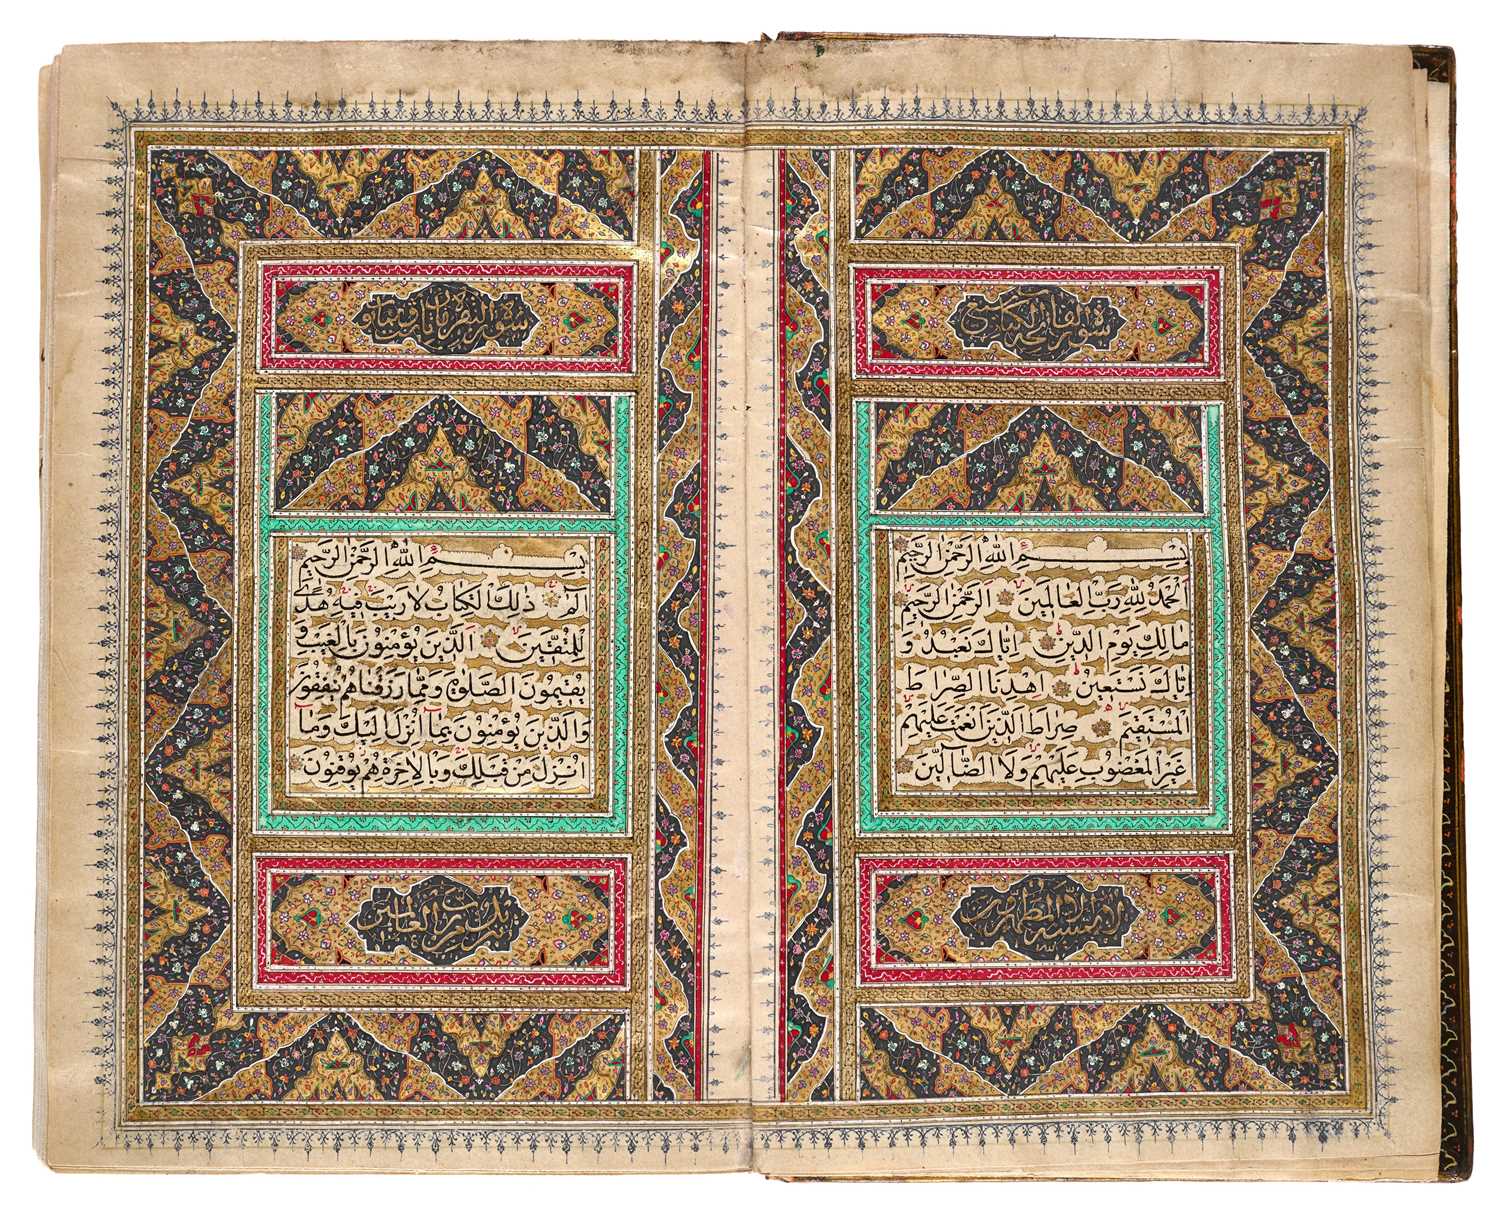 سورة الفاتحة الكتاب سبع
بسم الله الرحمن الرحيم
الحمد لله رب العالمين الرحمن الرحيم
مالك يوم الدين اياك نعبد و
اياك نستعين اهدنا الصراط
المستقيم صراط الذين انعمت عليهم
غير المغضوب عليهم ولا الضالين
لا يمسه الا المطهرون
سورة البقرة مائتان و
بسم الله الرحمن الرحيم
الم ذلك الكتاب لا ريب فيه هدى
للمتقين الذين يؤمنون بالغيب و
يقيمون الصلوة ومما رزقناهم ينفقون
والذين يؤمنون بما انزل اليك وما
انزل من قبلك وبالاخرة هم يوقنون
تنزيل من رب العالمين